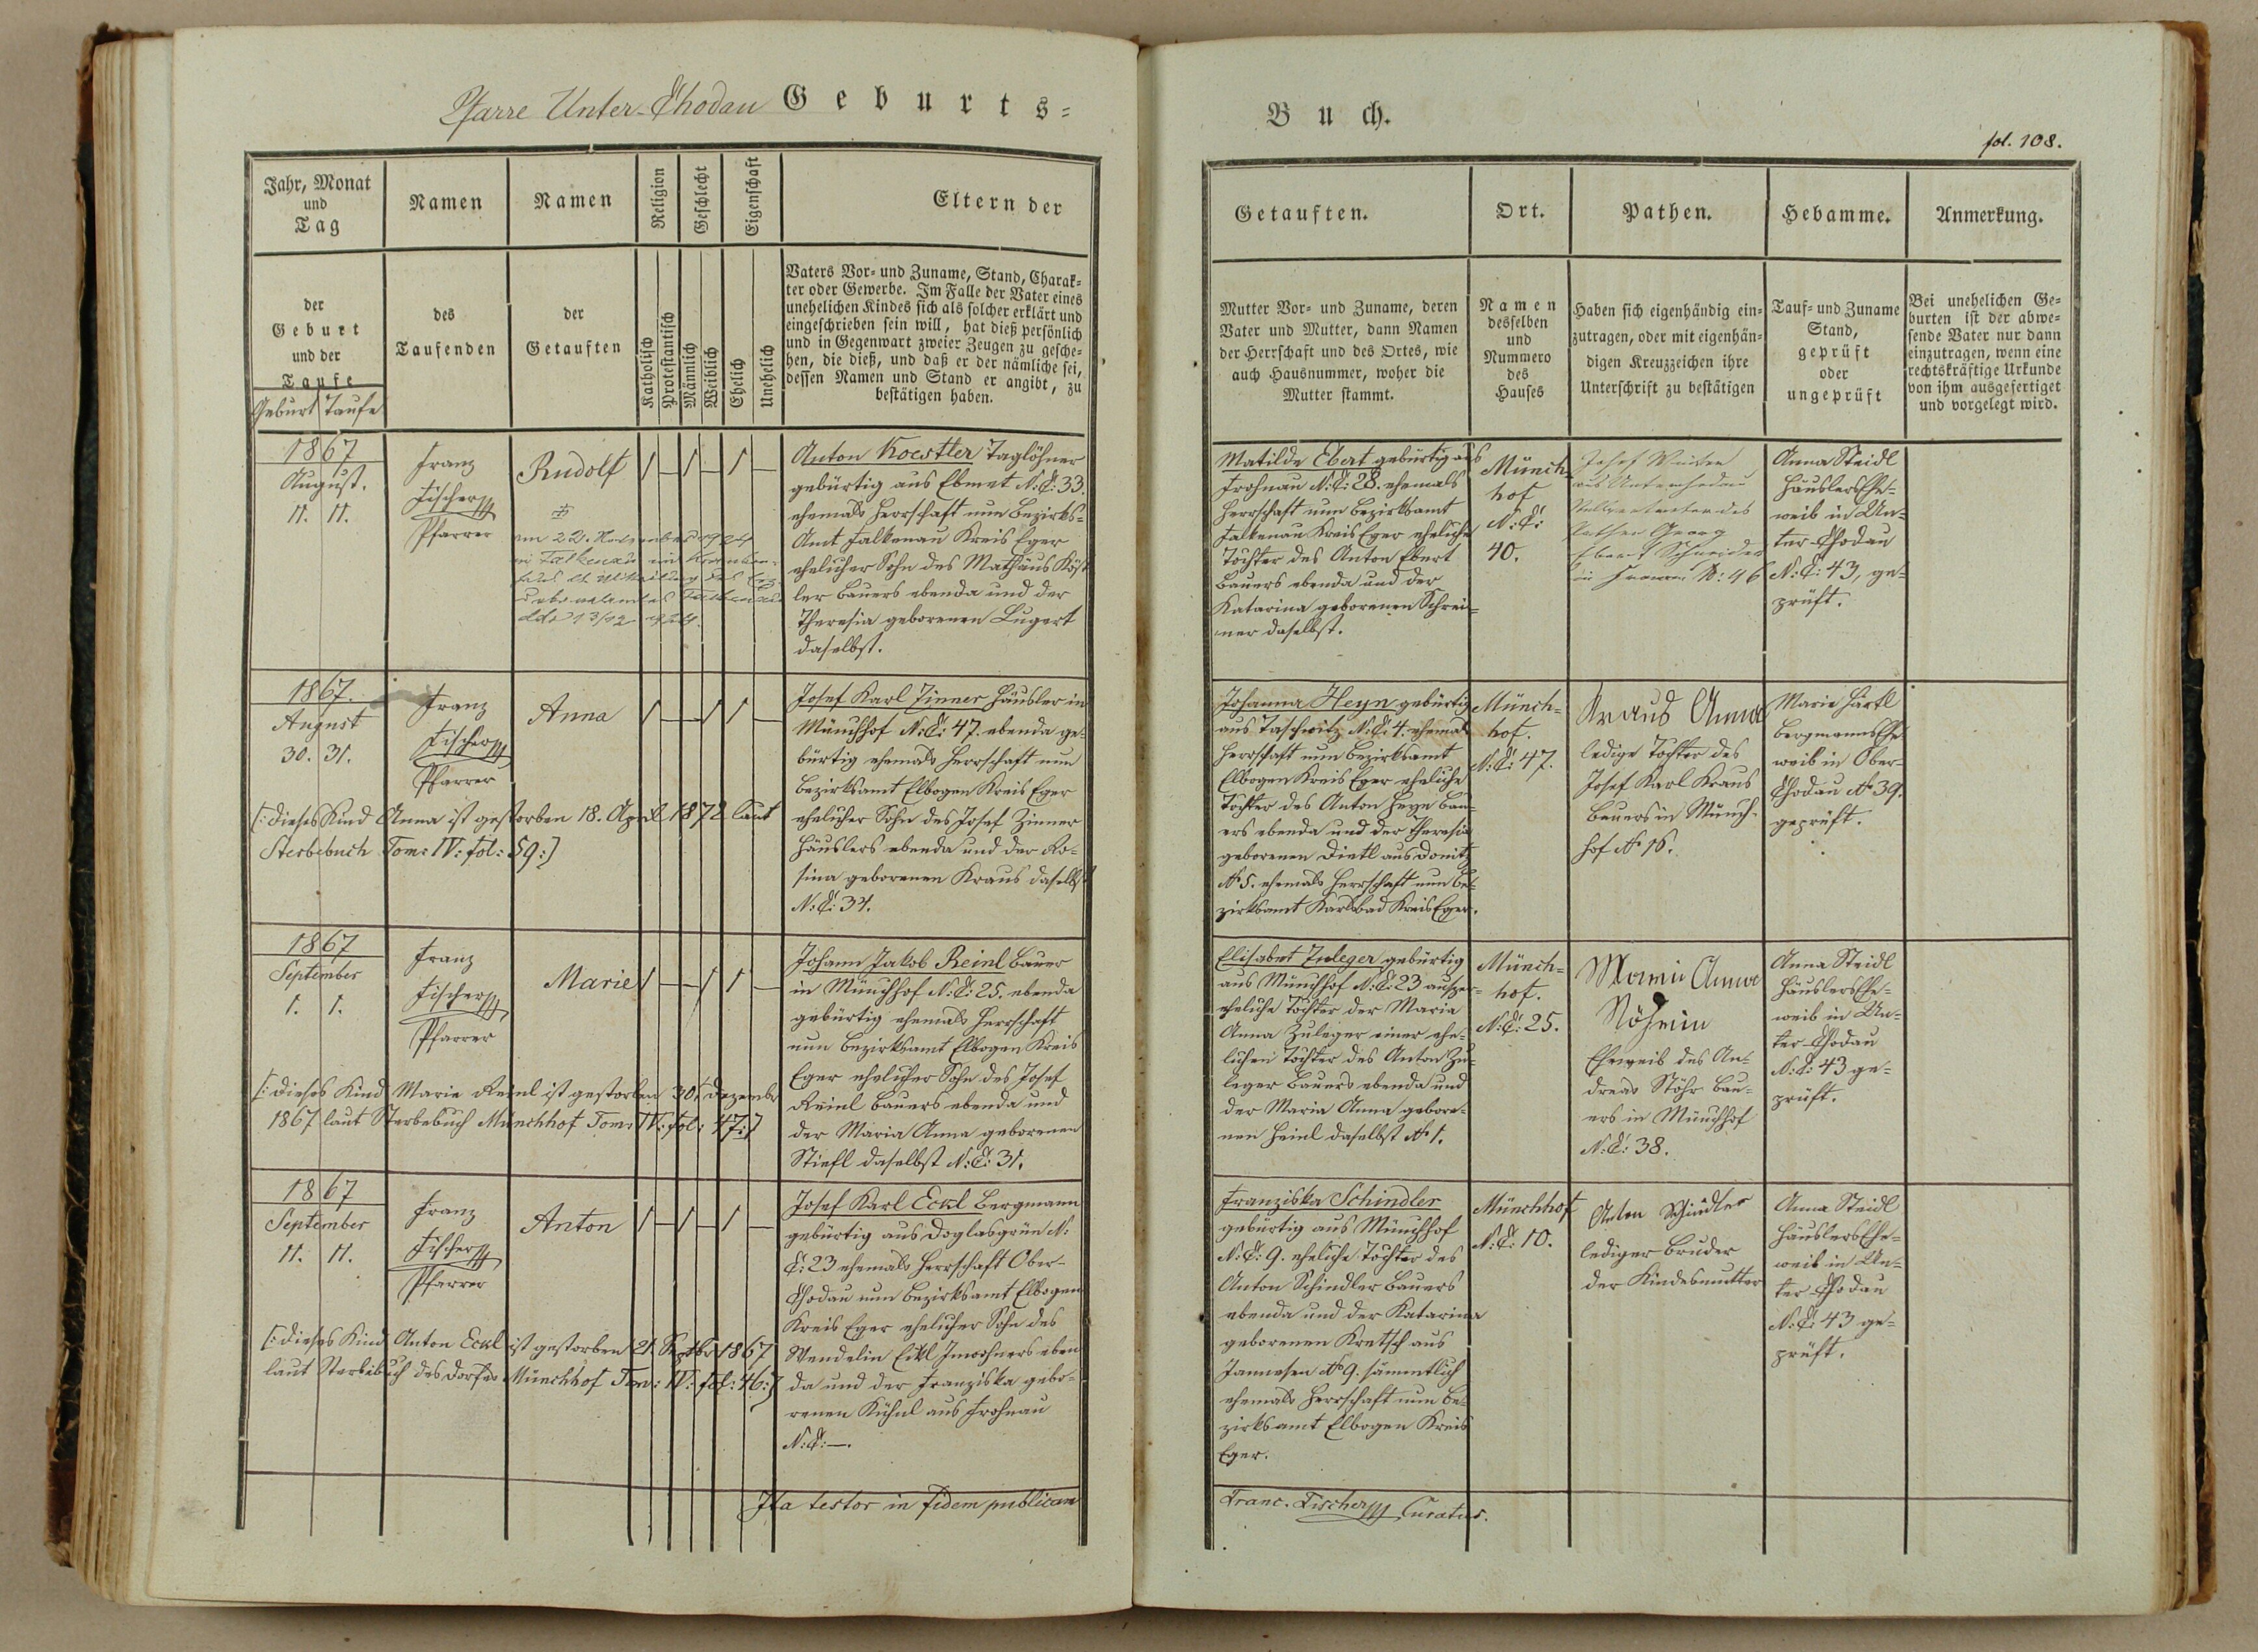 Pfarre Unter-Chodau Geburts=
Jahr, Monat
und
Tag
Namen
Namen
Religion
Geschlecht
Eigenschaft
Eltern der
der
Geburt
und der
Taufe
Geburt Taufe
des
Taufenden
der
Getauften
Katholisch
Protestantisch
Männlich
Weiblich
Ehelich
Unehelich
Vaters Vor- und Zuname, Stand, Charak-
ter oder Gewerbe. Im Falle der Vater eines
unehelichen Kindes sich als solcher erklärt und
eingeschrieben sein will, hat dieß persönlich
und in Gegenwart zweier Zeugen zu gesche-
hen, die dieß, und daß er der nämliche sei,
dessen Namen und Stand er angibt, zu
bestätigen haben.
1867
August.
11. 11.
Franz
Fischer
Pfarrer
Rudolf
am 22. November 1924
in Falkenau im
ddo 13/12 1924.
Anton Koestler Taglöhner
gebürtig aus Ebmet N: C: 33.
ehemals Herrschaft nun Bezirks=
Amt Falkenau Kreis Eger
ehelicher Sohn des Mathäus Köst
ler Bauers ebenda und der
Theresia geborenen Lugert
daselbst.
1867.
August
30. 31.
Franz
Fischer
Pfarrer
Anna
[: dieses Kind Anna ist gestorben 18. April 1872 laut
Sterbebuch Tom: IV: fol: 59:]
Josef Karl Zinner Häusler in
Münchhof N: C: 47. ebenda ge-
bürtig ehemals Herrschaft nun
Bezirksamt Elbogen Kreis Eger
ehelicher Sohn des Josef Zinner
Häuslers ebenda und der Ro-
sina geborenen Kraus daselbst
N: C: 34.
1867
September
1. 1.
Franz
Fischer
Pfarrer
Marie
[: dieses Kind Marie Reinl ist gestorben 30. Dezember
1867 laut Sterbebuch Münchhof Tom: IV: fol: 47:]
Johann Jakob Reinl Bauer
in Münchhof N: C: 25. ebenda
gebürtig ehemals Herrschaft
nun Bezirksamt Elbogen Kreis
Eger ehelicher Sohn des Josef
Reinl Bauers ebenda und
der Maria Anna geborenen
Stiefl daselbst N: C: 31.
1867
September
11. 11.
Franz
Fischer
Pfarrer
Anton
[: dieses Kind Anton Eckl ist gestorben 21. Septbr 1867
laut Sterbebuch des Dorfes Münchhof Tom: IV: fol: 46:]
Josef Karl Eckl Bergmann
gebürtig aus Doglasgrün N:
C: 23 ehemals Herrschaft Ober-
Chodau nun Bezirksamt Elbogen
Kreis Eger ehelicher Sohn des
Wendelin Eckl Inwohners eben
da und der Franziska gebo-
renen Kühnl aus Frohnau
N: C: —.
Ita testor in fidem publicam
Buch.
fol. 108.
Getauften.
Ort.
Pathen.
Hebamme.
Anmerkung.
Mutter Vor- und Zuname, deren
Vater und Mutter, dann Namen
der Herrschaft und des Ortes, wie
auch Hausnummer, woher die
Mutter stammt.
Namen
desselben
und
Nummero
des
Hauses
Haben sich eigenhändig ein-
zutragen, oder mit eigenhän-
digen Kreuzzeichen ihre
Unterschrift zu bestätigen
Tauf- und Zuname
Stand,
geprüft
oder
ungeprüft
Bei unehelichen Ge-
burten ist der abwe-
sende Vater nur dann
einzutragen, wenn eine
rechtskräftige Urkunde
von ihm ausgefertiget
und vorgelegt wird.
Matilde Ebert gebürtig aus
Frohnau N: C: 28. ehemals
Herrschaft nun Bezirksamt
Falkenau Kreis Eger eheliche
Tochter des Anton Ebert
Bauers ebenda und der
Katarina geborenen Schrei-
ner daselbst.
Münch-
hof
N: C:
40.
Josef
aus Unterchodau
Stellvertreter des
Pathen Georg
Ebert Schneider
in N: 46
Anna Steidl
HäuslersEhe-
weib in Un-
ter Chodau
N: C: 43, ge-
prüft.
Johanna Heyn gebürtig
aus Taschwitz N: C: 4. ehemals
Herrschaft nun Bezirksamt
Elbogen Kreis Eger eheliche
Tochter des Anton Heyn Bau-
ers ebenda und der Theresia
geborenen Dietl aus Donitz
No 5. ehemals Herrschaft nun Be-
zirksamt Karlsbad Kreis Eger.
Münch-
hof.
N: C: 47.
Kraus Anna
ledige Tochter des
Josef Karl Kraus
Bauers in Münch-
hof No 16.
Marie Härtl
BergmannsEhe
weib in Ober-
Chodau No 39.
geprüft.
Elisabet Zuleger gebürtig
aus Münchhof N: C: 23 außer-
eheliche Tochter der Maria
Anna Zuleger einer ehe-
lichen Tochter des Anton Zu-
leger Bauers ebenda und
der Maria Anna gebore-
nen Heinl daselbst No 1.
Münch-
hof.
N: C: 25.
Maria Anna
Stöhrin
Eheweib des An-
dreas Stöhr Bau-
ers in Münchhof
N: C: 38.
Anna Steidl
HäuslersEhe-
weib in Un-
ter Chodau
N: C: 43 ge-
prüft.
Franziska Schindler
gebürtig aus Münchhof
N: C: 9. eheliche Tochter des
Anton Schindler Bauers
ebenda und der Katarina
geborenen Kretsch aus
Janessen No 9. sämmtlich
ehemals Herrschaft nun Be-
zirksamt Elbogen Kreis
Eger.
Münchhof
N: C: 10.
Anton Schindler
lediger Bruder
der Kindesmutter
Anna Steidl
HäuslersEhe-
weib in Un-
ter Chodau
N: C: 43 ge-
prüft.
Franc. Fischer Curatus.